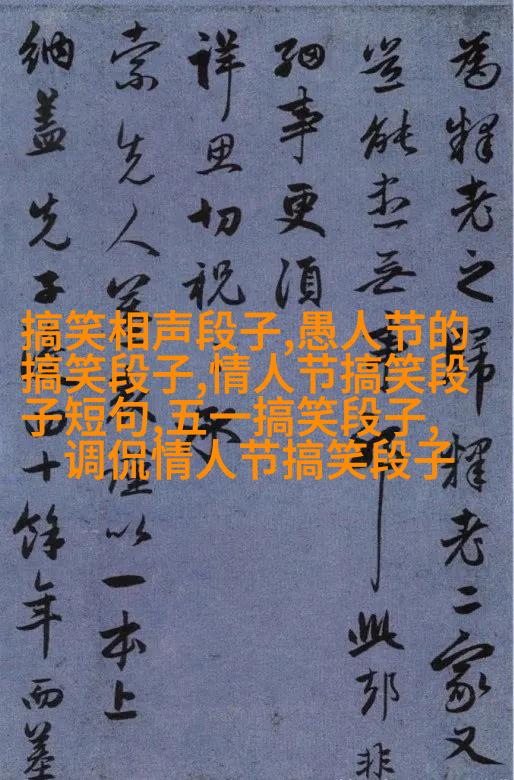 為釋老之歸釋老二家又
豈能盡無 耶此却非
細事更須
詳思切祝
索先人墓 以一本上
納蓋先子 四十餘年而墓
搞笑相声段子,愚人节的
搞笑段子,情人节搞笑段
子短句,五一搞笑段子,
调侃情人节搞笑段子